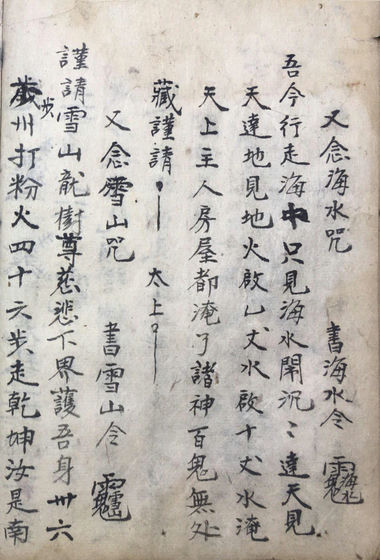 又念海水咒 書海水令
吾今行走海中只見海水閙沉〻達天見
天達地見地火啟乙丈水啟十丈水淹
天上主人房屋都淹了諸神百鬼無处
藏謹請 太上
又念雪山咒 書雪山令
謹請雪山龍樹尊慈悲下界護吾身卅六
步州打粉火四十六步走乾坤汝是南